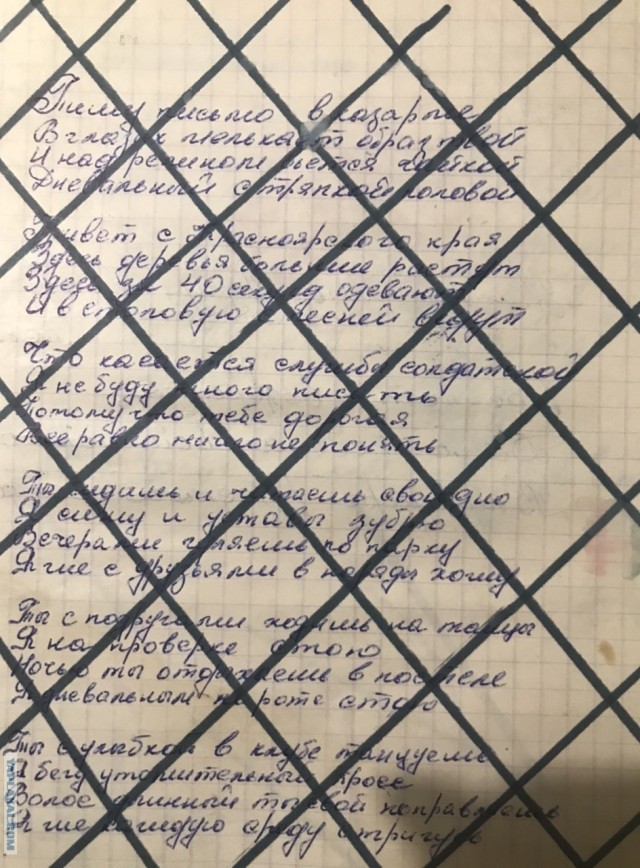 Пишу письмо в казарме
В глазах мелькает образ твой
И над ремнем вьется чайкой
Дневальный с тряпкой половой
Привет с Красноярского края
Здесь деревья большие растут
Здесь за 40 секунд одевают
И в столовую с песней ведут
Что касается службы солдатской
Я не буду много писать
Потому что тебе дорогая
Все равно ничего не понять
Ты сидишь и читаешь свой
Я сижу и уставы зубрю
Вечерами гуляешь по парку
Я же с друзьями в наряды хожу
Ты с подругами ходишь на танцы
Я на проверке стою
Ночью ты отдыхаешь в постели
Я дневальным по роте стою
Ты с улыбкой в клубе танцуешь
Я бегу утомительный кросс
Волос длинный ты свой поправляешь
Я же каждую среду стригусь
YAPLAKAL.COM